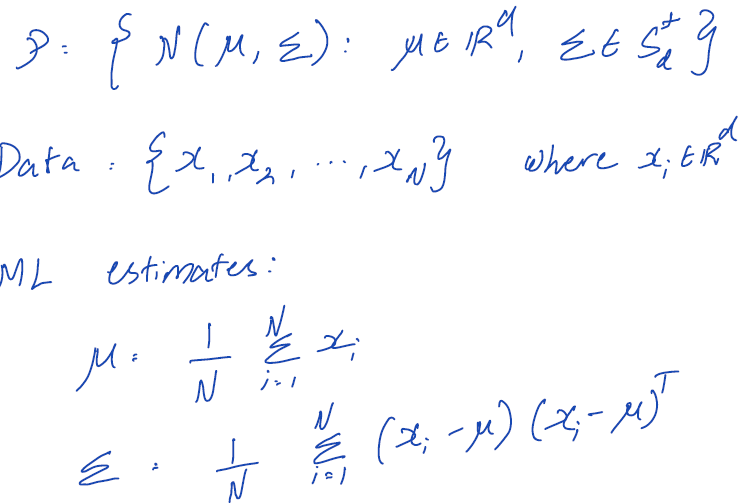 P: { N(μ, Σ): μ ∈ ℝ^d, Σ ∈ S_d^+ }
Data : {x_1, x_2, ..., x_N} where x_i ∈ ℝ^d
ML estimates:
μ = 1/N Σ_{i=1}^N x_i
Σ = 1/N Σ_{i=1}^N (x_i - μ)(x_i - μ)^T